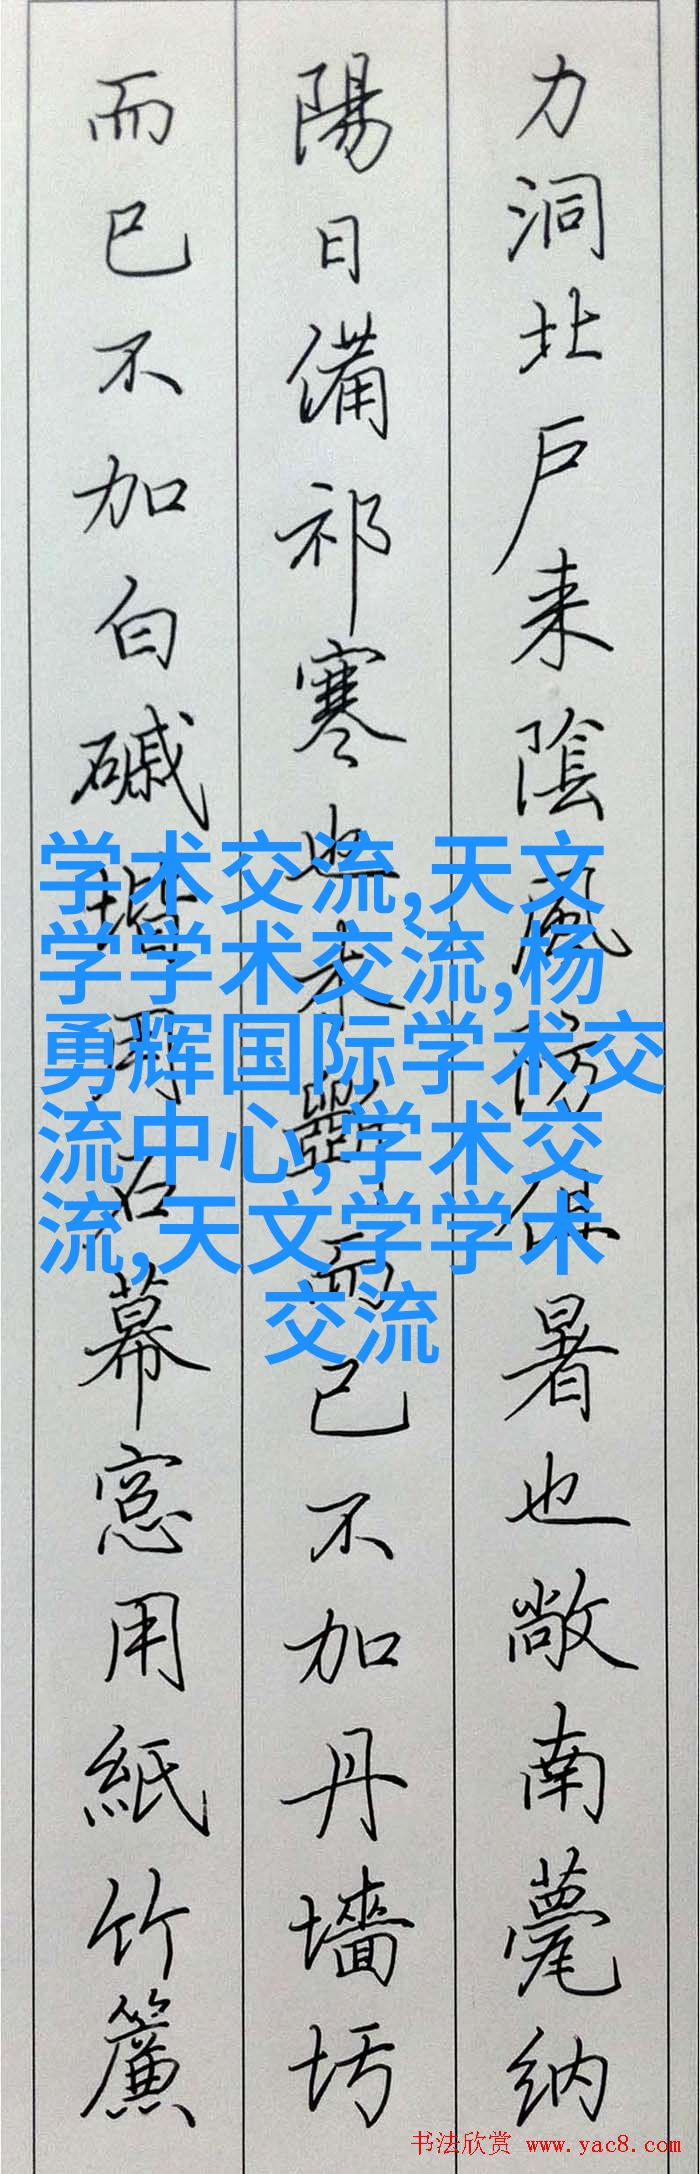 力洞北戶来陰風防徂暑也敞南甍纳
陽日備祁寒也木斲而已不加丹墻圬
而已不加白磩堦用石幕窓用紙竹簾
学术交流,天文
学学术交流,杨
勇辉国际学术交
流中心,学术交
流,天文学学术
交流
书法欣赏 www.yac8.com